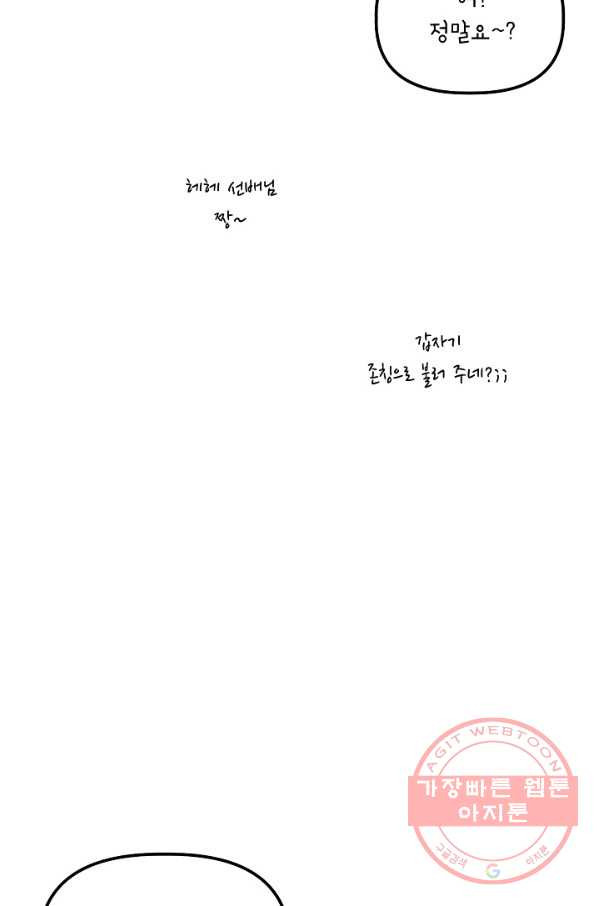 정말요~?
헤헤 선배님
짱~
갑자기
존칭으로 불러 주네?;;
AGIT WEBTOON
가장빠른 웹툰
아지툰
구글검색 G 아지툰